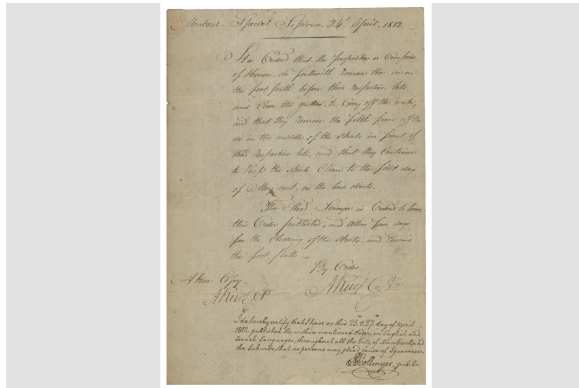 Special Sessions 24th April, 1812.
It is Ordered that the Proprietors or Occupiers
of Houses do forthwith remove the
the foot paths before their respective lots
and clean the gutters to carry off the water,
and that they remove the filth from off the
in the middle of the streets in front of
their respective lots, and that they continue
to keep the streets clean to the first day
of May next, as the law directs.
The Road Surveyor is Ordered to have
this Order published, and allow four days
for the cleaning of the streets and
the foot paths —
By Order
A true Copy
I do hereby certify that I have on this 25th & 27th day of April
1812 published the within mentioned Order in English and
French Languages, throughout all the City of Montreal and
the Suburbs, that no persons may plead cause of Ignorance.